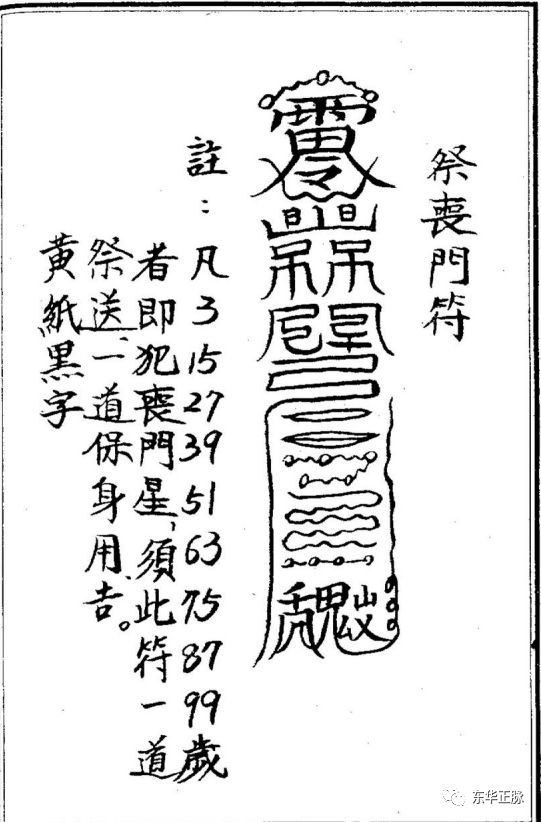 祭喪門符
雷令
註：
凡3 15 27 39 51 63 75 87 99歲
者即犯喪門星，須此符一道
祭送、一道保身用、吉。
黃紙黑字
东华正脉